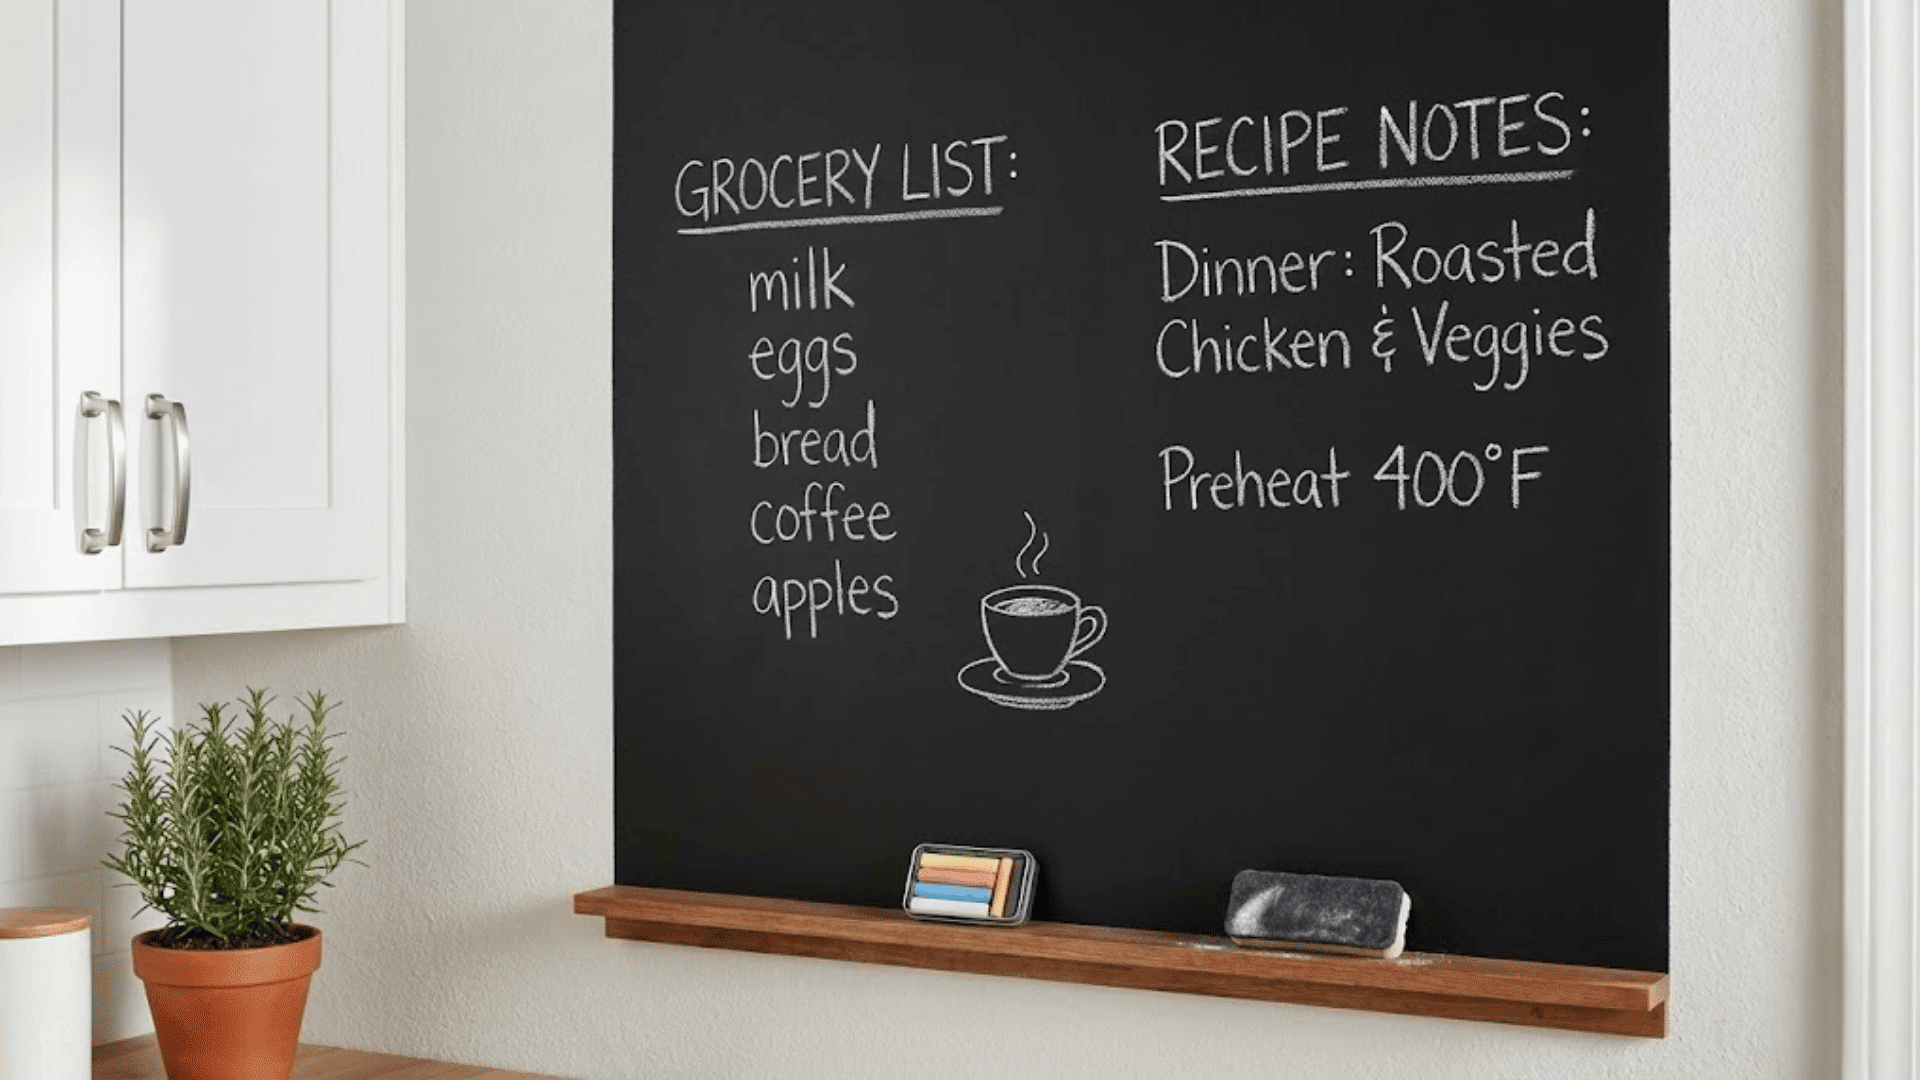 GROCERY LIST:
milk
eggs
bread
coffee
apples
RECIPE NOTES:
Dinner: Roasted
Chicken & Veggies
Preheat 400°F